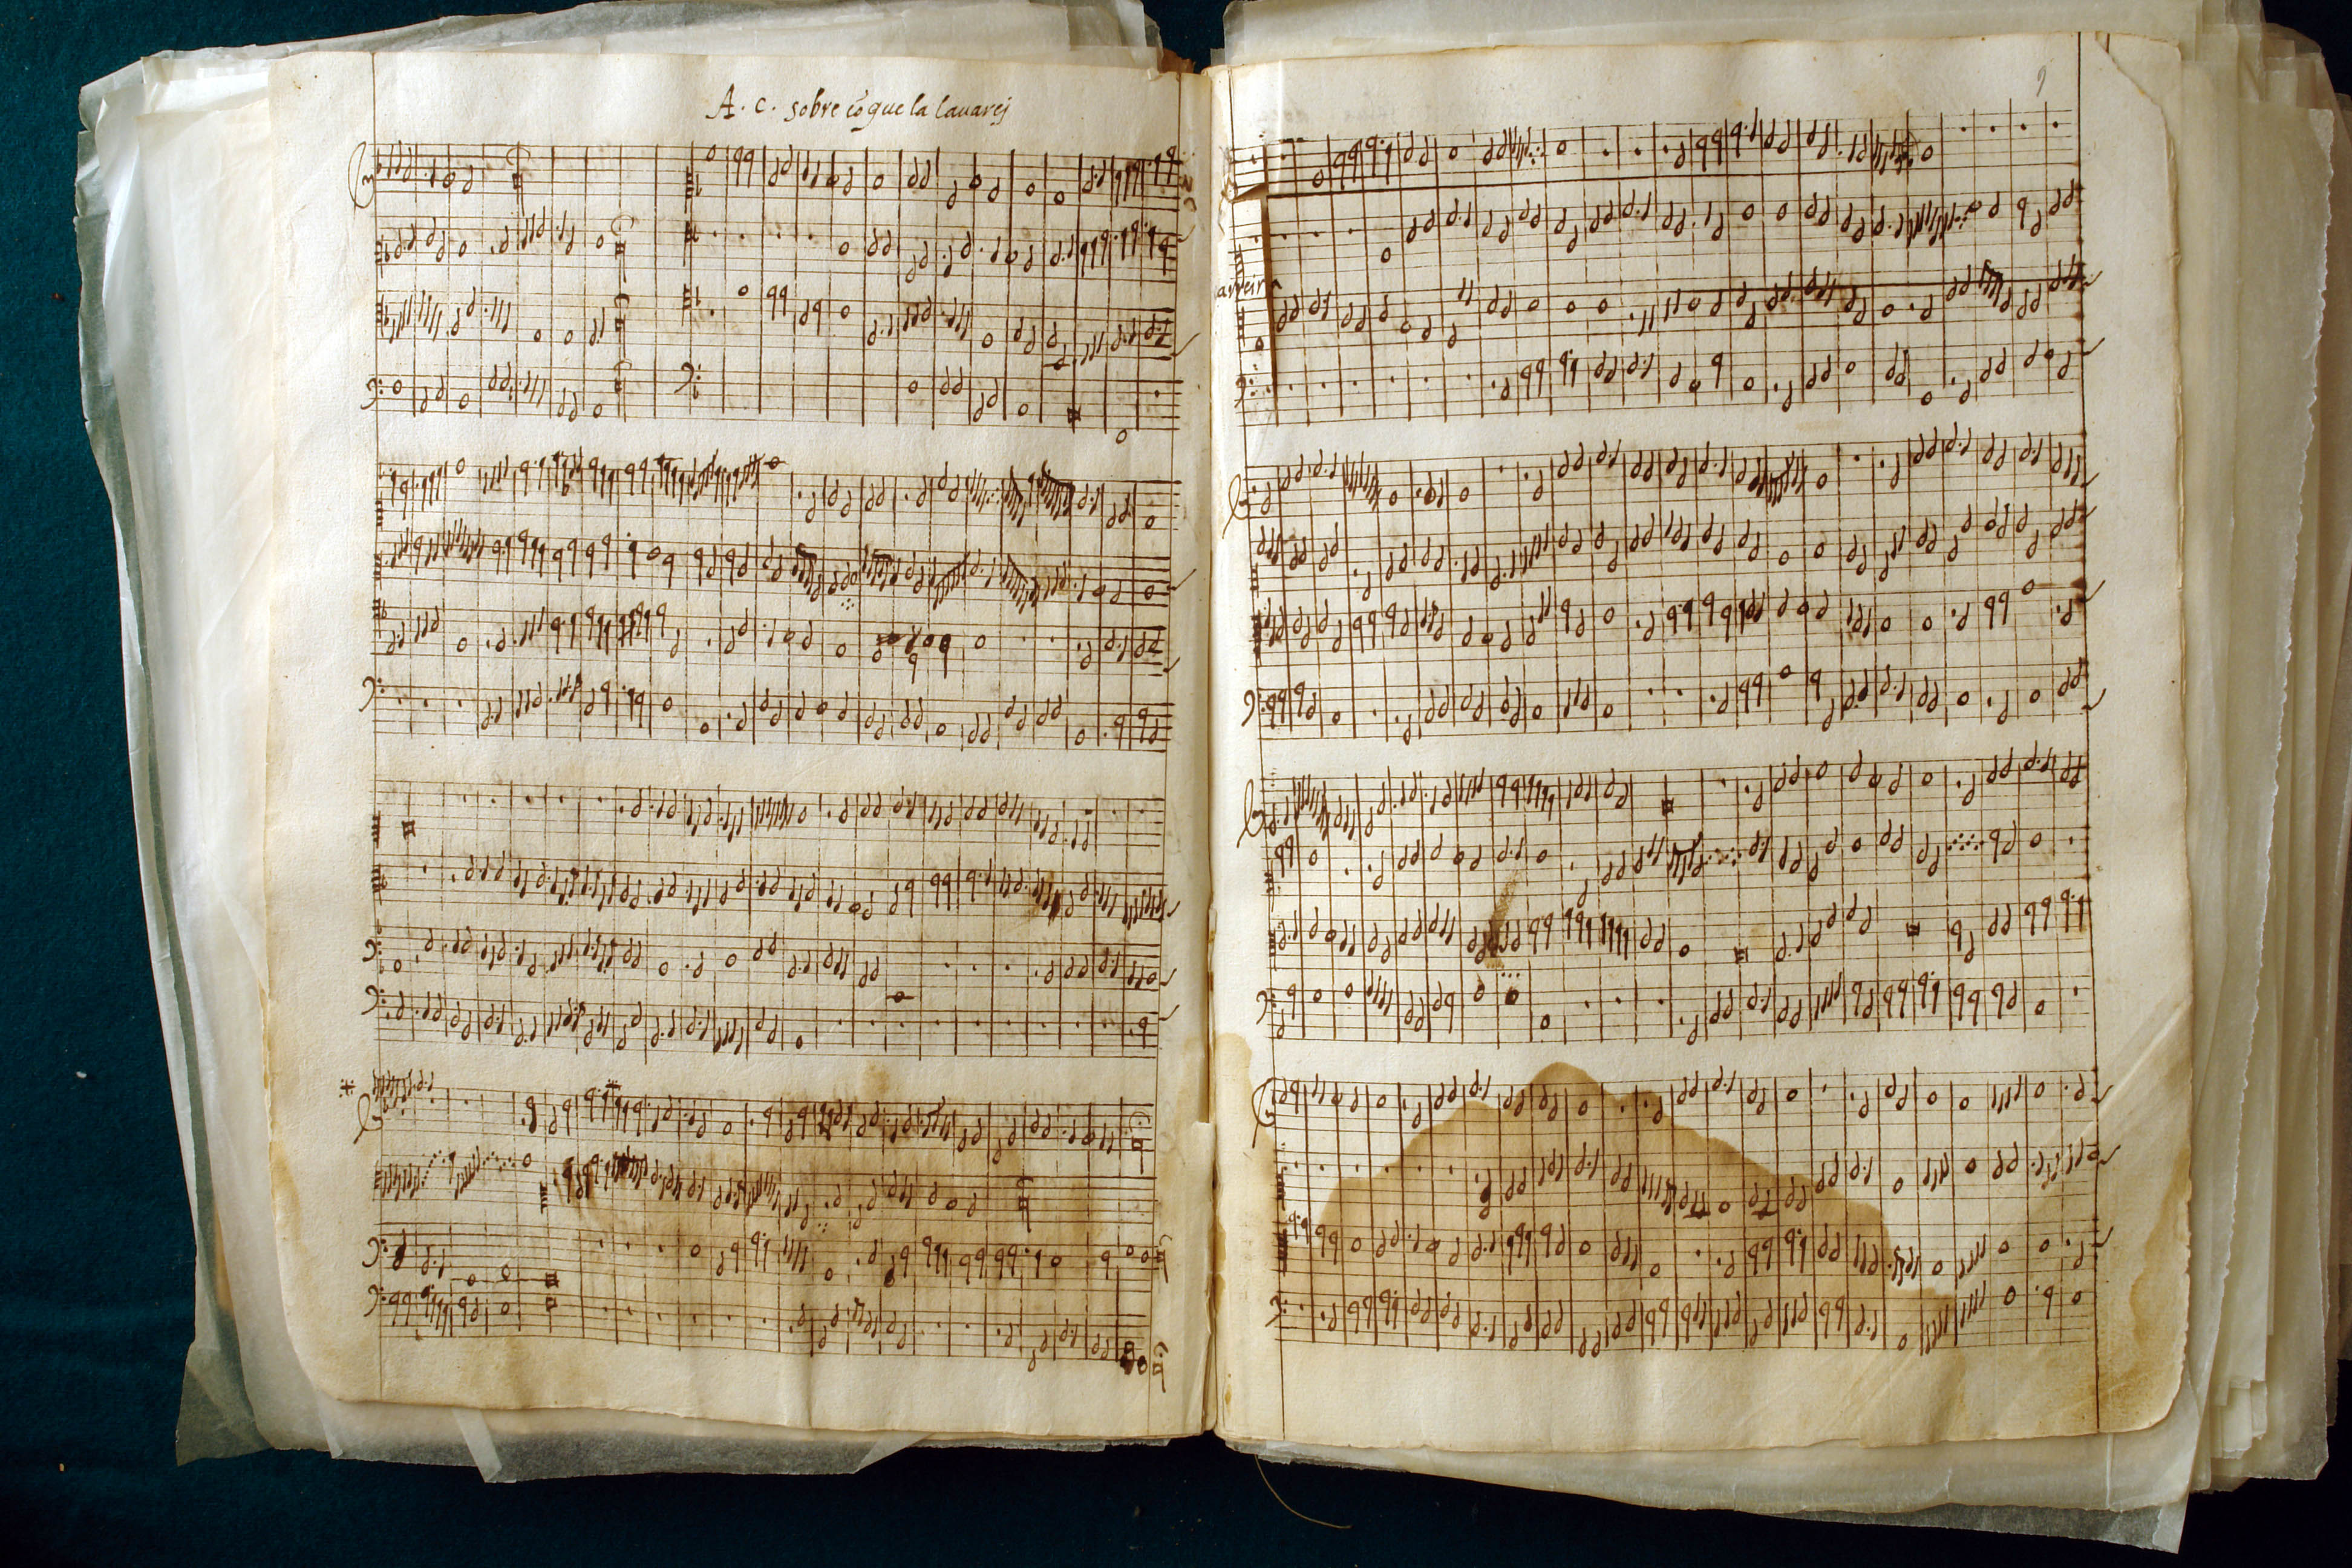 A. c. sobre cõ que la lauarej
9